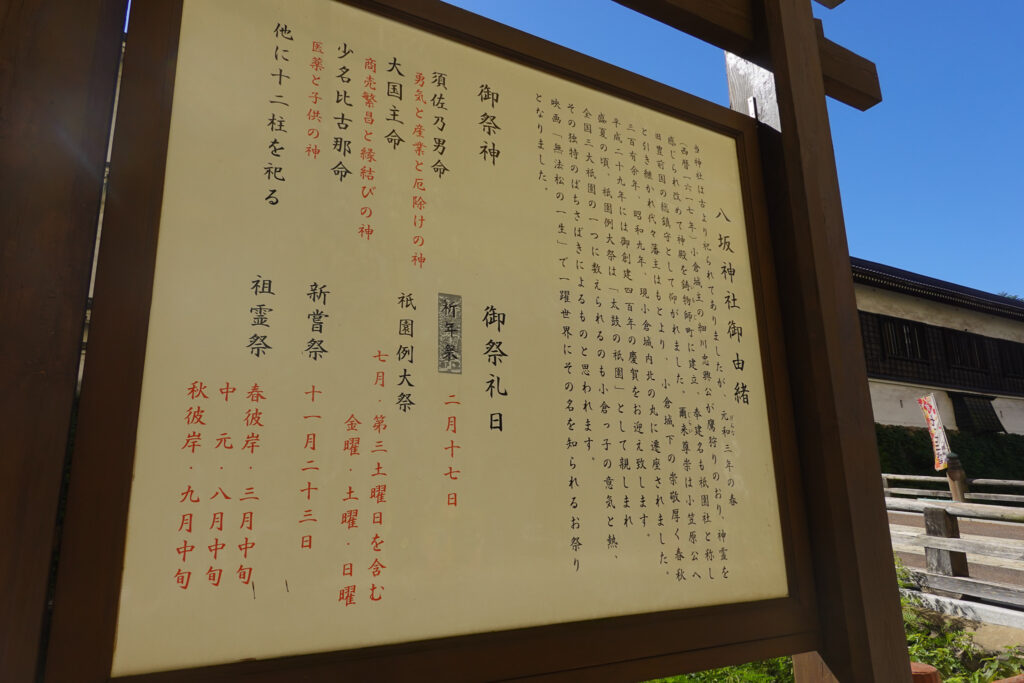 八坂神社御由緒
当神社は古より祀られてありましたが、元和三年の春
(西暦一六一七年)小倉城主の細川忠興公が鷹狩りのおり、神霊を
感じられ改めて神殿を鋳物師町に建立、奉建名も祇園社と称し
旧豊前国の総鎮守として仰がれました。爾来尊崇は小笠原公へ
と引き継がれ代々藩主はもとより、小倉城下の崇敬厚く春秋
三百有余年、昭和九年、現小倉城内北の丸に遷座されました。
平成二十九年には御創建四百年の慶賀をお迎え致します。
盛夏の頃、祇園例大祭は「太鼓の祇園」として親しまれ
全国三大祇園の一つに数えられるのも小倉っ子の意気と熱、
その独特のばちさばきによるものと思われます。
映画「無法松の一生」で一躍世界にその名を知られるお祭り
となりました。
御祭神
須佐乃男命
勇気と産業と厄除けの神
大国主命
商売繁昌と縁結びの神
少名比古那命
医薬と子供の神
他に十二柱を祀る
御祭礼日
祈年祭 二月十七日
祇園例大祭
七月・第三土曜日を含む
金曜・土曜・日曜
新嘗祭 十一月二十三日
祖霊祭 春彼岸・三月中旬
中 元・八月中旬
秋彼岸・九月中旬